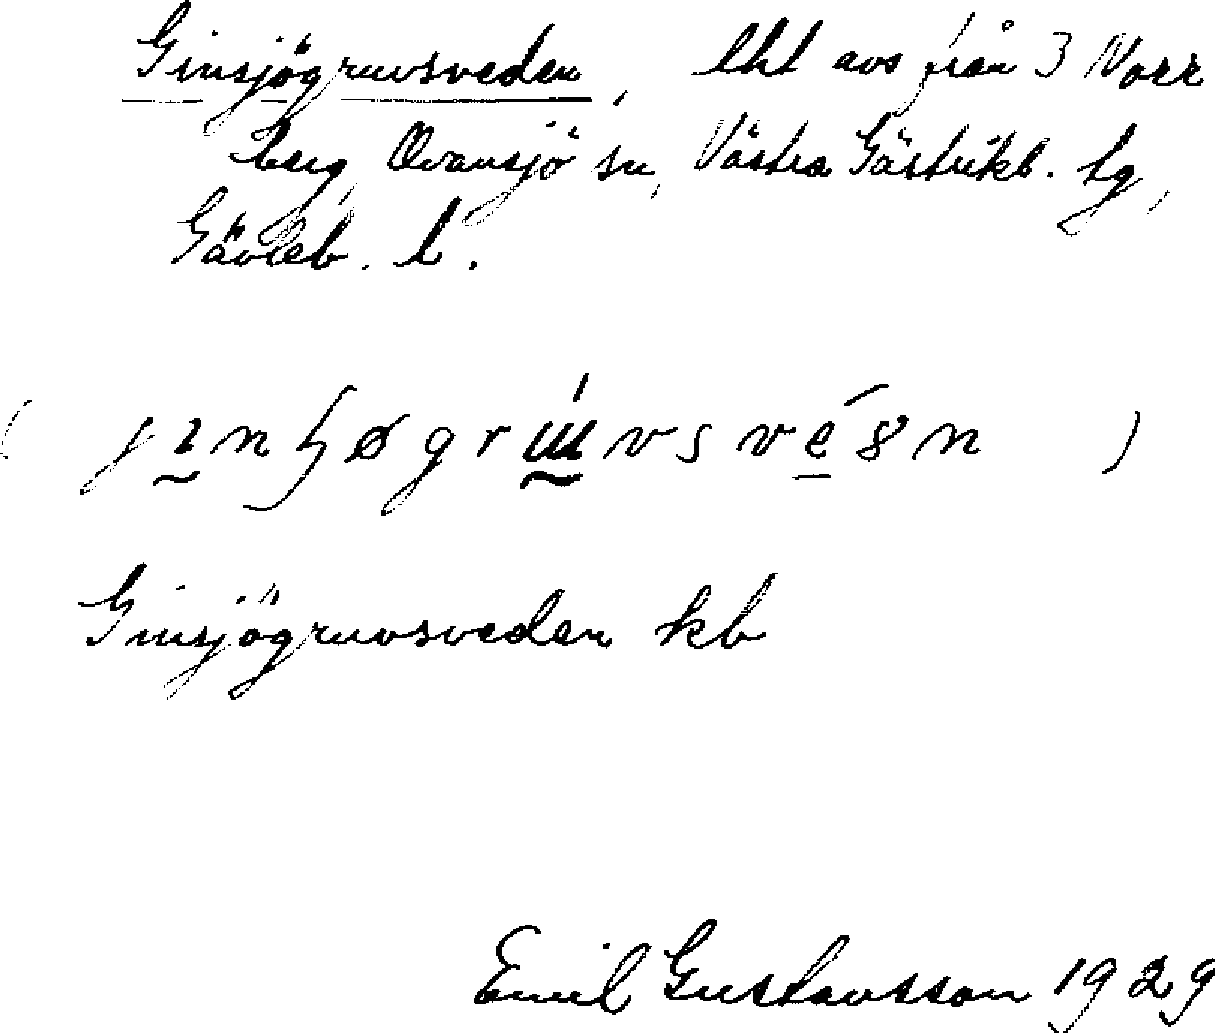 Ginsjögruvsveden, lht avs från 3 Norr
berg, Ovansjö sn, Västra Gästrikl. tg,
Gävleb. l.
Ginsjögruvsveden kb
Emil Gustavsson 1929